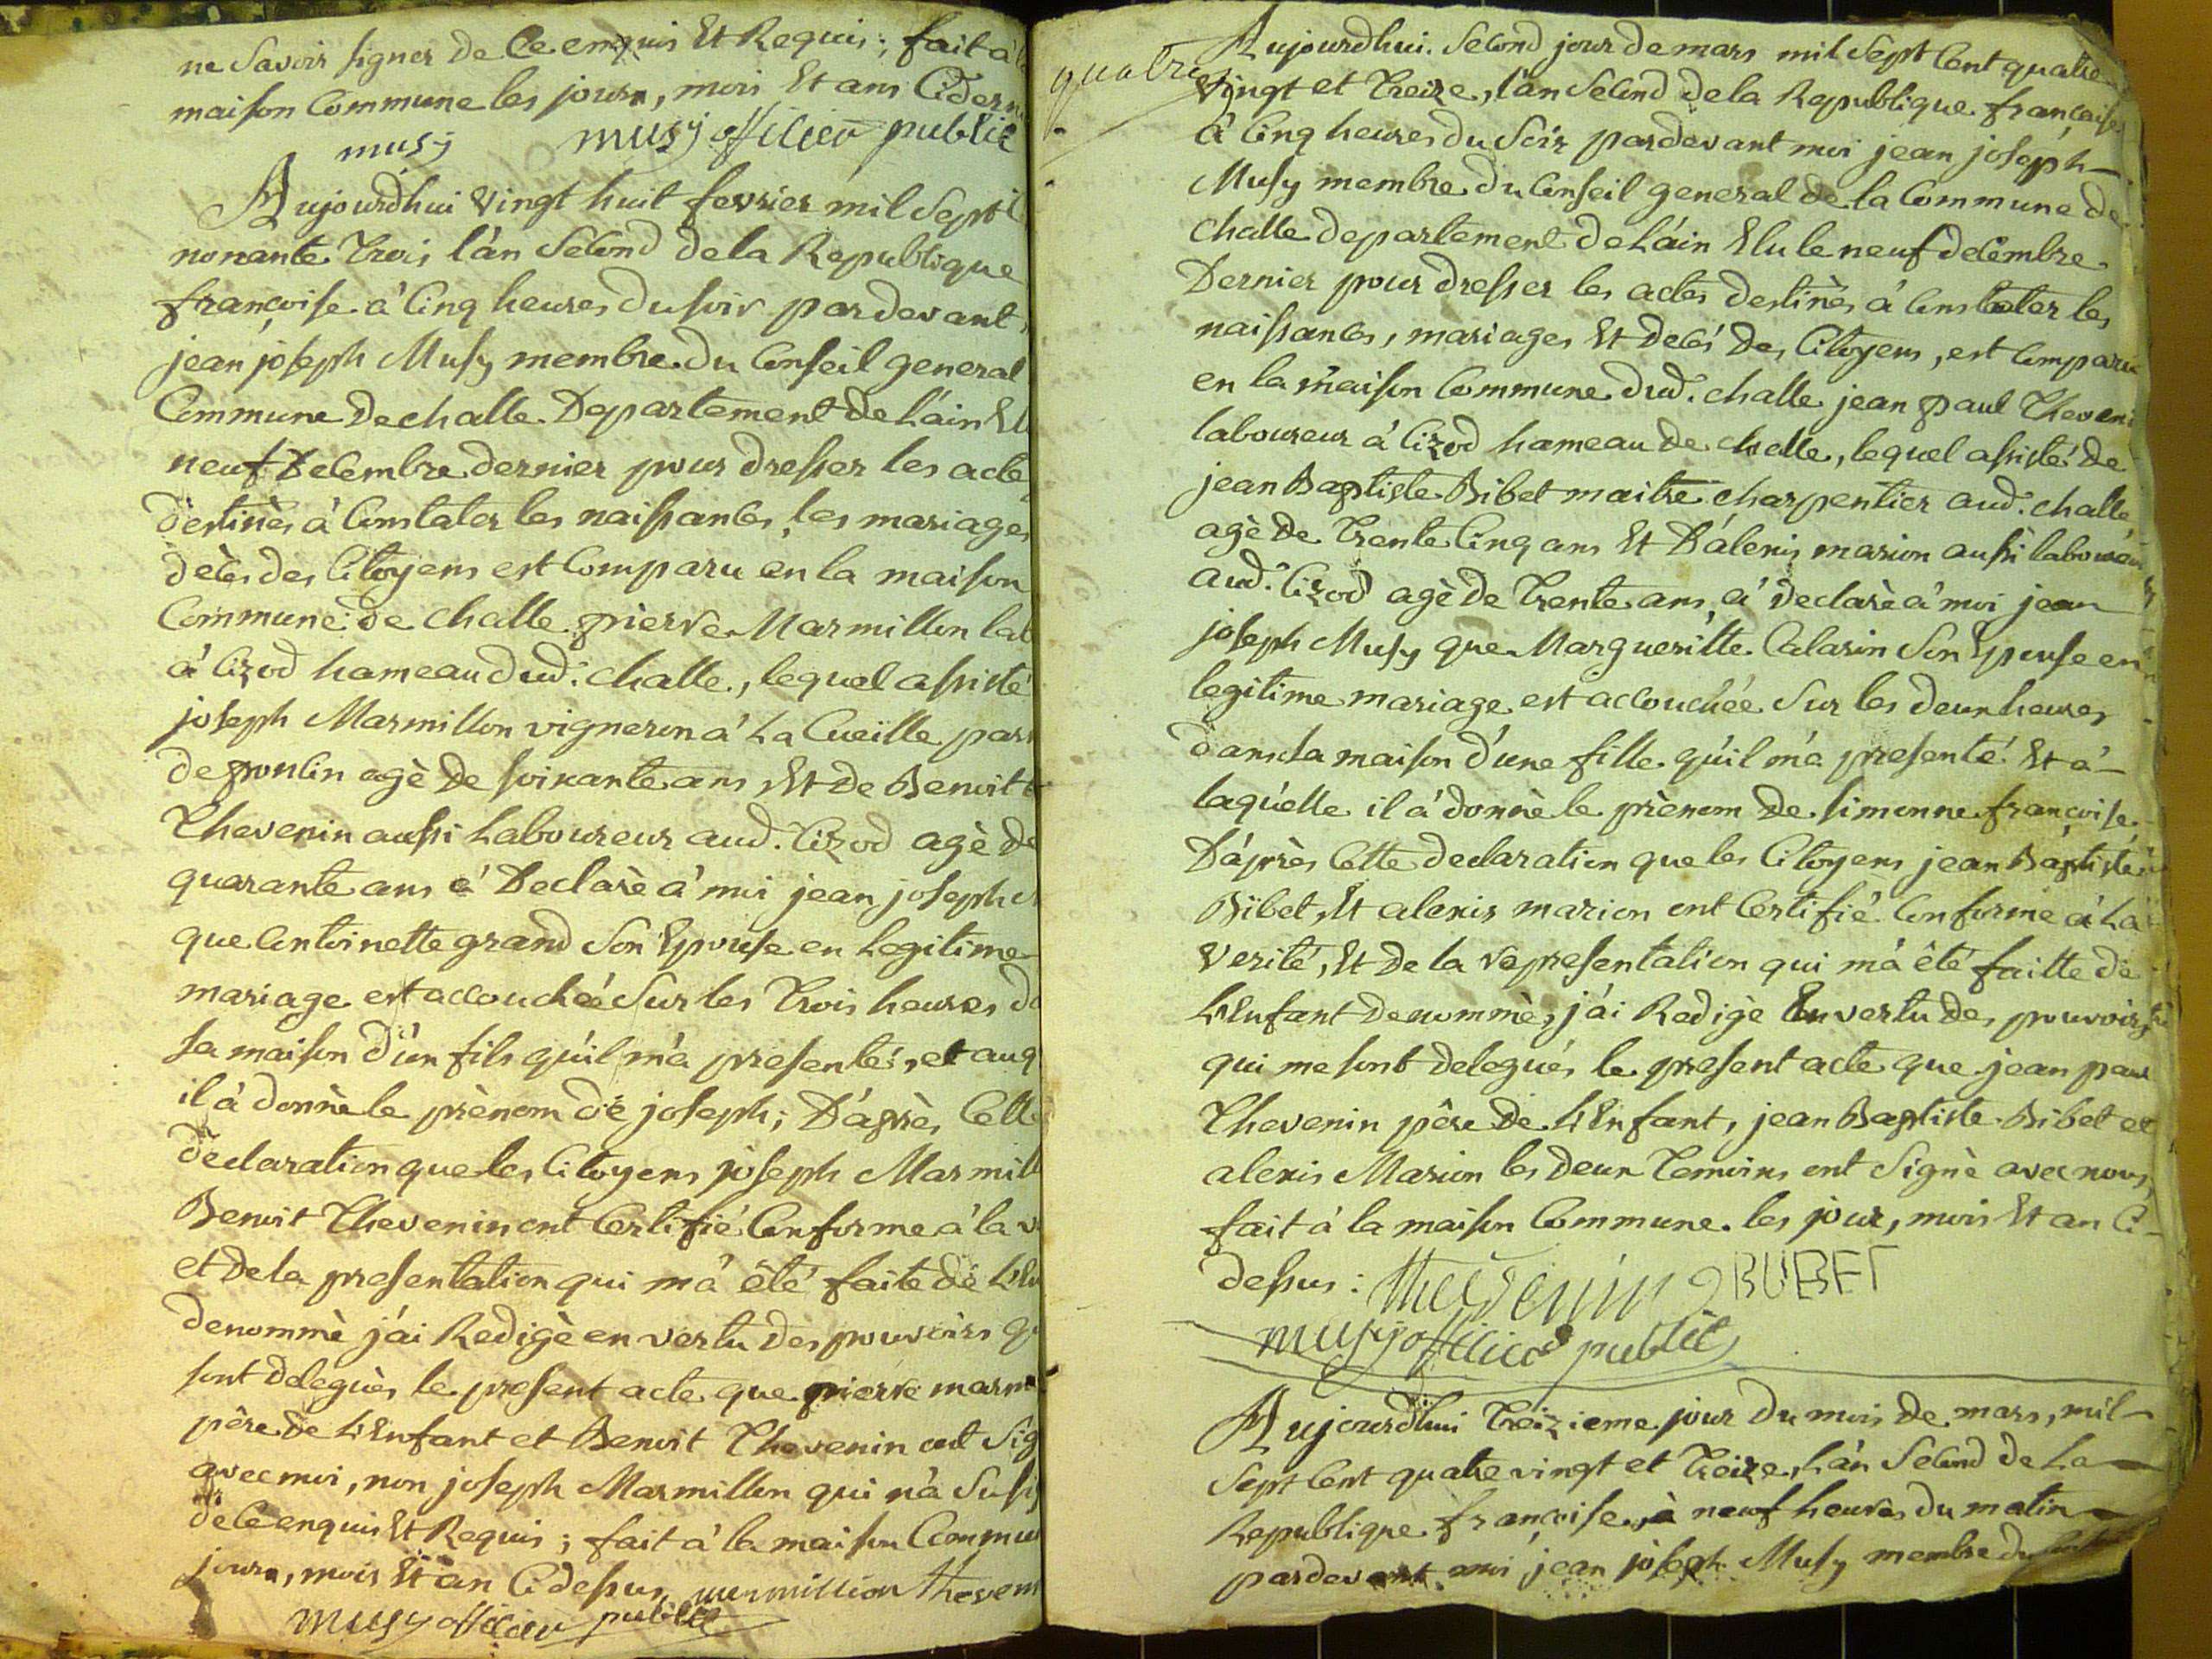 ne Savoir signer de Ce enquis Et Requis; fait à
maison Commune les jours, mois Et ans Cider
musy musy officier public
Aujourdhui Vingt huit fevrier mil Sept
nonante Trois l'àn Second de la Republique
françoise à Cinq heures du soir pardevant
jean joseph Musy membre du Conseil general
Commune de challe Departement de L'àin El
neuf Decembre dernier pour dresser les acte
destinès à Constater les naissances, les mariages
dècès des Citoyens est Comparu en la maison
Commune de challe pierre Marmillon lab
à Cizod hameau dud. challe, lequel assisté
joseph Marmillon vigneron à La Cueille par
de poncin agè de soixante ans Et de Benoit
Thevenin aussi Laboureur aud. Cizod agè de
quarante ans à Declarè à moi jean joseph
que antoinette grand Son Epouse en Legitime
mariage est accouchée Sur les Trois heures d
sa maison d'ùn fils qu'il m'a presenté, et auq
il à donnè le prènom de joseph; D'après Cette
declaration que les Citoyens joseph Marmill
Benoit Thevenin ont Certifié Conforme à la v
et de la presentation qui m'à êté faite de L'En
denommè j'ai Redigè en vertu des pouvoirs q
sont deleguès le present acte que pierre marm
père de L'Enfant et Benoit Thevenin ont Sig
avec moi, non joseph Marmillon qui n'à Su si
de Ce enquis Et Requis; fait à la maison Commu
jours, mois Et àn Cidessus marmillion theven
musy officier public
quatre
Aujourdhui Second jour de mars mil Sept Cent quatre
Vingt et Treize, l'àn Second de la Republique française
à Cinq heures du Soir pardevant moi jean joseph
Musy membre du Conseil general de la Commune de
challe departement de L'àin Elu le neuf decembre
Dernier pour dresser les actes destinès à Constater les
naissances, mariages Et decés des Citoyens, est Comparu
en la maison Commune dud. challe jean paul Theveni
laboureur à Cizod hameau de challe, lequel assisté de
jean Baptiste Bibet maitre charpentier aud. challe
agè de Trente Cinq ans Et D'alexis marion aussi laboureur
aud. Cizod agè de Trente ans à declarè à moi jean
joseph Musy que Margueritte Calarin Son Epouse en
legitime mariage est accouchée Sur les deux heures
dans la maison d'une fille qu'il m'à presenté Et à
laquelle il à donnè le prènom de simonne françoise
D'après Cette declaration que les Citoyens jean Baptiste
Bibet Et alexis marion ont Certifié Conforme à La
Verité, Et de la representation qui m'à êté faitte de
L'Enfant denommè, j'ai Redigè En vertu des pouvoirs
qui me sont delegués le present acte que jean paul
Thevenin père de L'Enfant, jean Baptiste Bibet et
alexis Marion les deux Temoins ont Signè avec nous,
fait à la maison Commune les jour, mois Et an Ci-
dessus: thevenin BUBET
musy officier public
Aujourdhui Treizieme jour du mois de mars, mil
Sept Cent quatre vingt et Treize, L'àn Second de La
Republique françoise, à neuf heures du matin
pardevant moi jean joseph Musy membre du